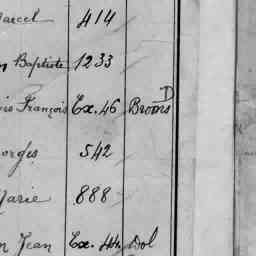 arcel 414
n Baptiste 1233
is François Ex. 46 Broons D
orges 542
Marie 888
n Jean Ex. 44 Dol